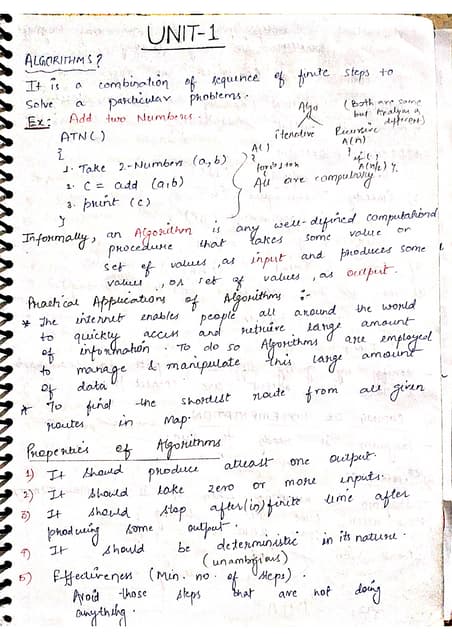 UNIT-1
ALGORITHMS?
It is a combination of sequence of finite steps to
solve a particular problems.
Ex: Add two Numbers.
ATN()
{
1. Take 2-Numbers (a,b)
2. C = add (a,b)
3. print (c)
}
Algo
(Both are same
but analysis is
different)
iterative
Recursive
A()
{
A(n)
{ if( )
A(n/2) }
All are compulsory
Informally, an Algorithm is any well-defined computational
procedure that takes some value or
set of values, as input and produces some
values, or set of values, as output.
Practical Applications of Algorithms :-
* The internet enables people all around the world
to quickly access and retrive large amount
of information. To do so Algorithms are employed
to manage & manipulate this large amount
of data.
* To find the shortest route from all given
routes in Map.
Properties of Algorithms
1) It should produce atleast one output.
2) It should take zero or more inputs.
3) It should stop after(in) finite time after
producing some output.
4) It should be deterministic in its nature.
(unambigious)
5) Effectiveness (Min. no. of steps).
Avoid those steps that are not doing
anything.